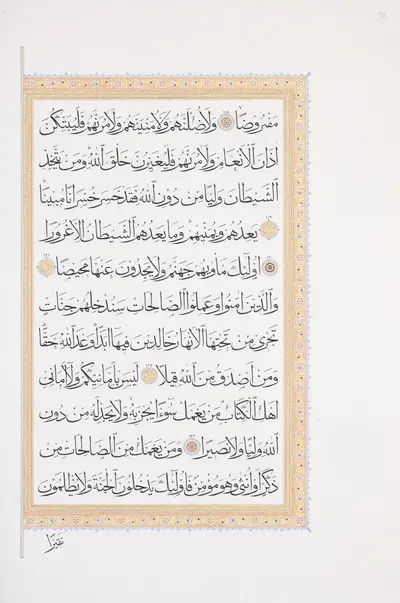 ٦٨
مَفْرُوضًا وَلَأُضِلَّنَّهُمْ وَلَأُمَنِّيَنَّهُمْ وَلَآمُرَنَّهُمْ فَلَيُبَتِّكُنَّ
آذَانَ الْأَنْعَامِ وَلَآمُرَنَّهُمْ فَلَيُغَيِّرُنَّ خَلْقَ اللَّهِ وَمَنْ يَتَّخِذِ
الشَّيْطَانَ وَلِيًّا مِنْ دُونِ اللَّهِ فَقَدْ خَسِرَ خُسْرَانًا مُبِينًا
يَعِدُهُمْ وَيُمَنِّيهِمْ وَمَا يَعِدُهُمُ الشَّيْطَانُ إِلَّا غُرُورًا
أُولَئِكَ مَأْوَيهُمْ جَهَنَّمُ وَلَا يَجِدُونَ عَنْهَا مَحِيصًا
وَالَّذِينَ آمَنُوا وَعَمِلُوا الصَّالِحَاتِ سَنُدْخِلُهُمْ جَنَّاتٍ
تَجْرِي مِنْ تَحْتِهَا الْأَنْهَارُ خَالِدِينَ فِيهَا أَبَدًا وَعْدَ اللَّهِ حَقًّا
وَمَنْ أَصْدَقُ مِنَ اللَّهِ قِيلًا لَيْسَ بِأَمَانِيِّكُمْ وَلَا أَمَانِيِّ
أَهْلِ الْكِتَابِ مَنْ يَعْمَلْ سُوءًا يُجْزَ بِهِ وَلَا يَجِدْ لَهُ مِنْ دُونِ
اللَّهِ وَلِيًّا وَلَا نَصِيرًا وَمَنْ يَعْمَلْ مِنَ الصَّالِحَاتِ مِنْ
ذَكَرٍ أَوْ أُنْثَى وَهُوَ مُؤْمِنٌ فَأُولَئِكَ يَدْخُلُونَ الْجَنَّةَ وَلَا يُظْلَمُونَ
نَقِيرًا